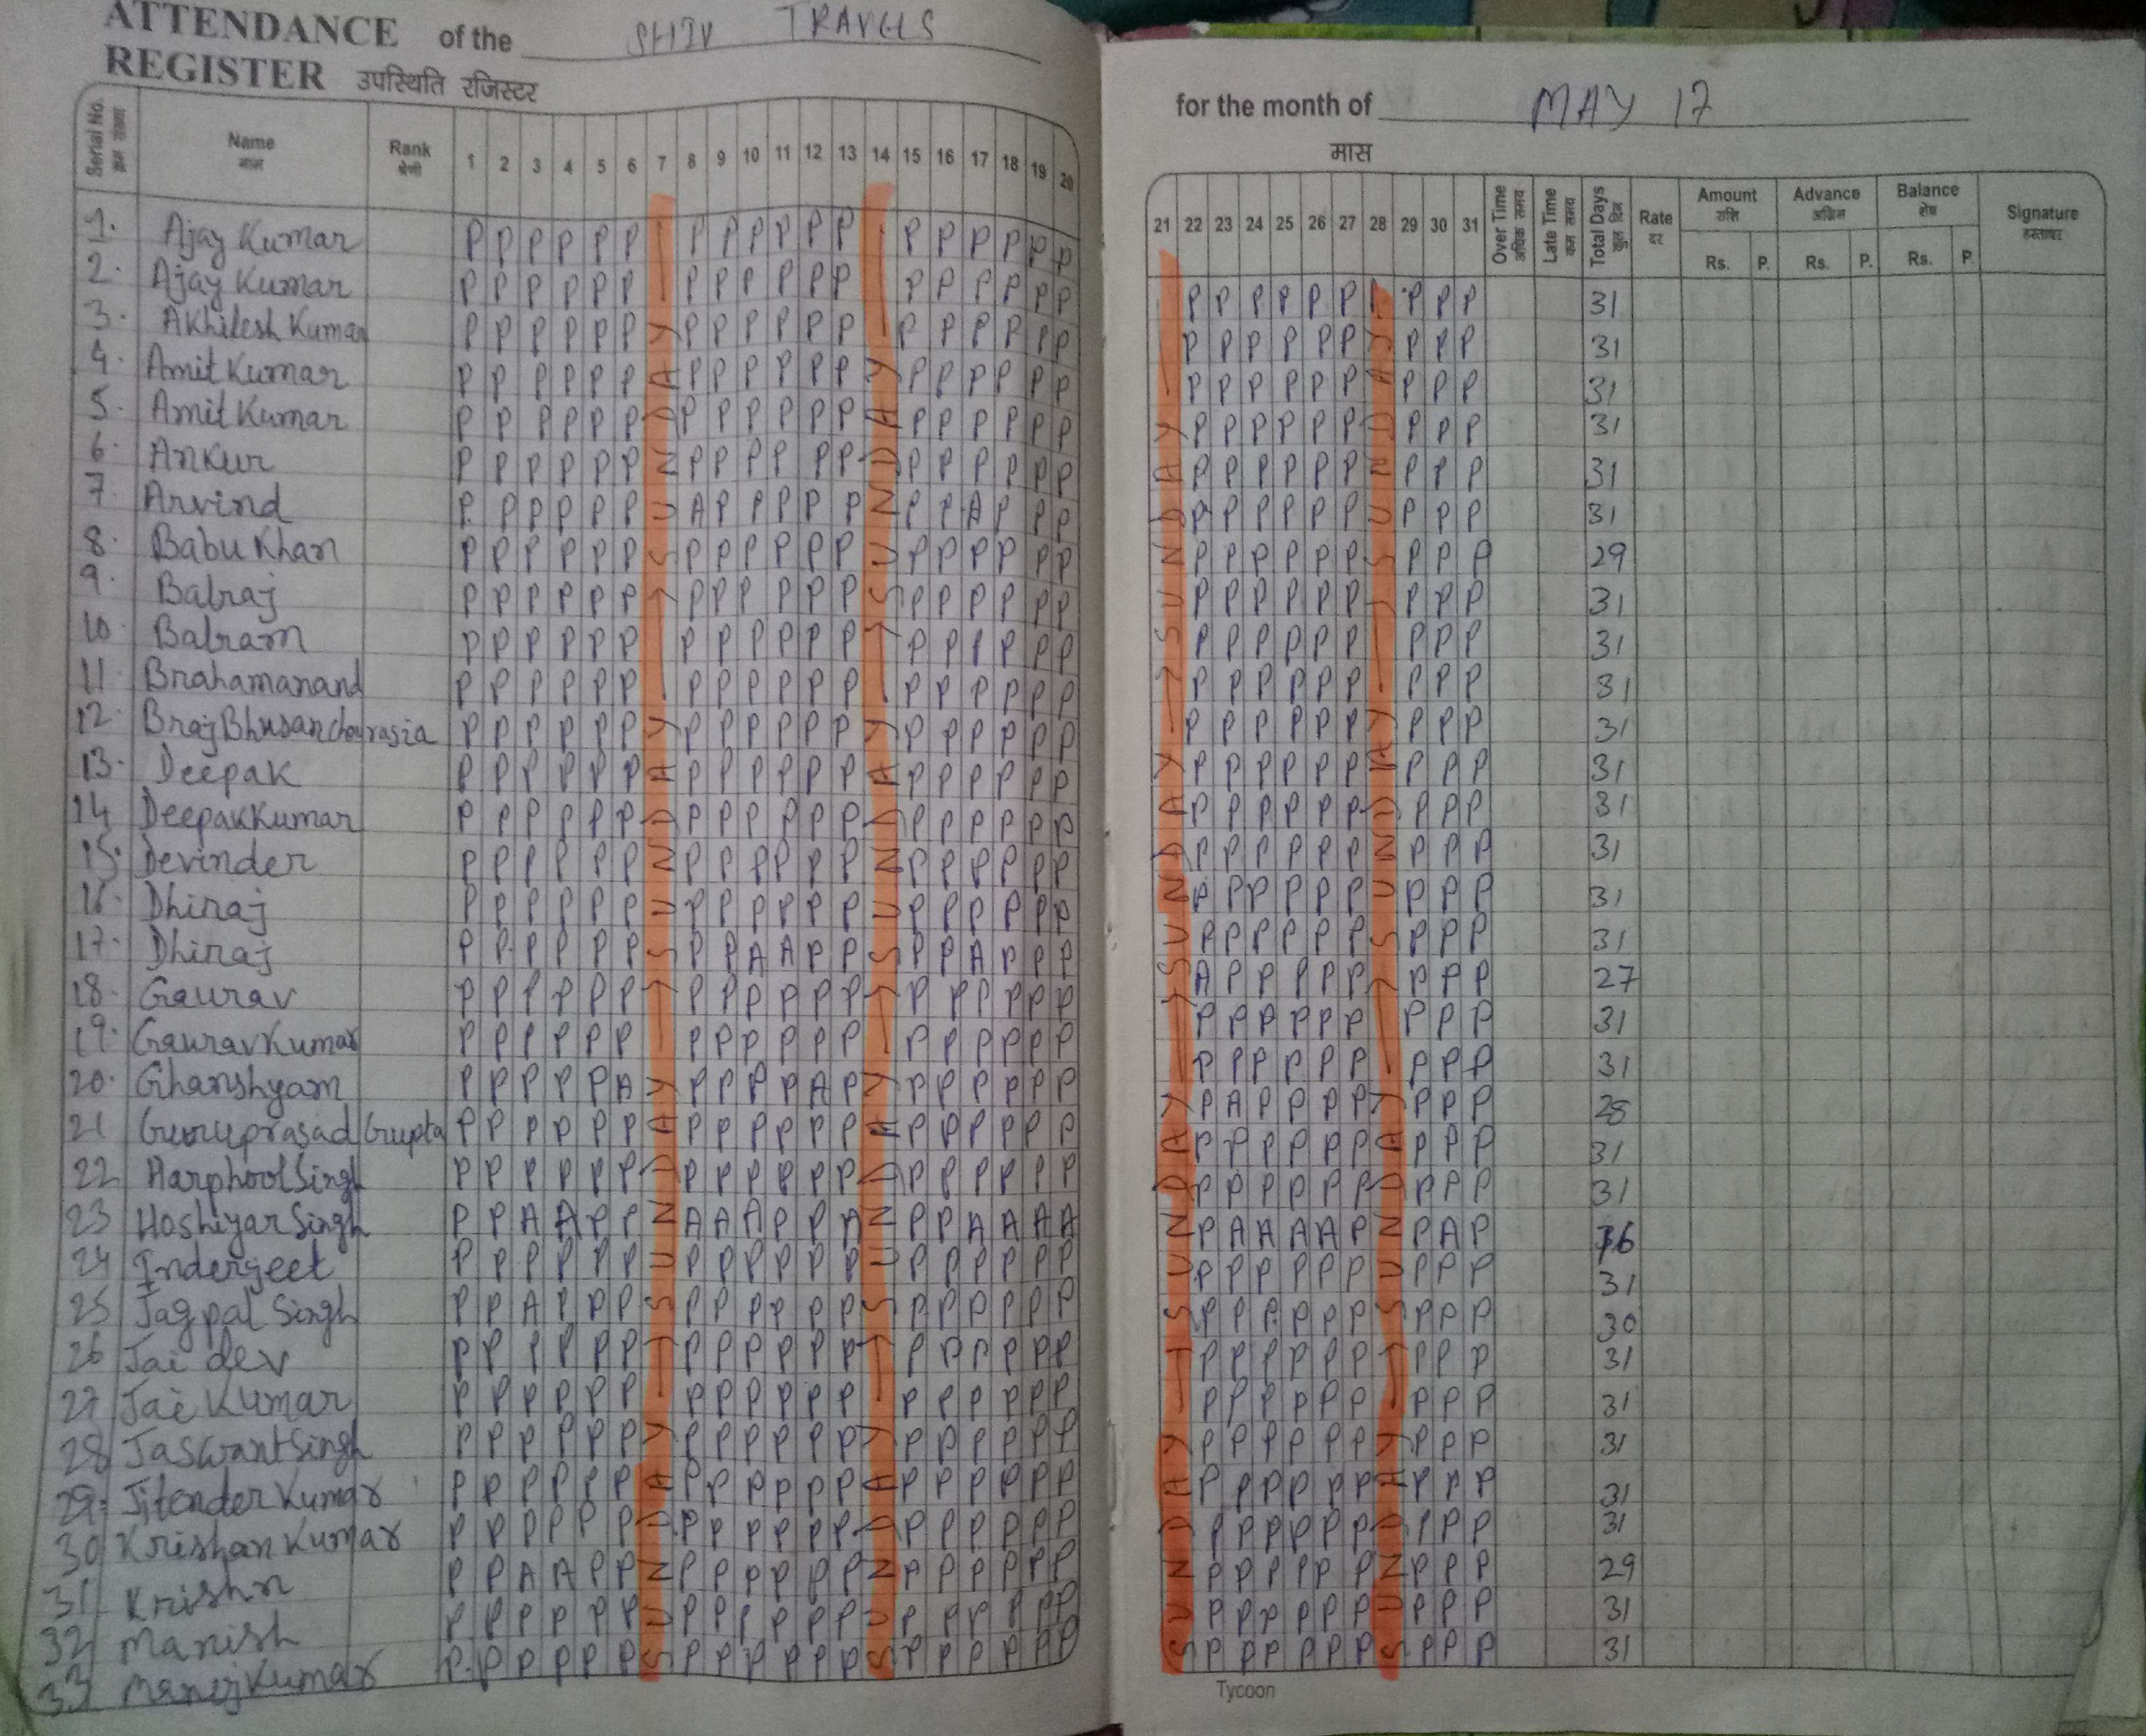 ATTENDANCE of the SHIV TRAVELS
REGISTER उपस्थिति रजिस्टर
Serial No. Name Rank 1 2 3 4 5 6 7 8 9 10 11 12 13 14 15 16 17 18 19 20
नाम श्रेणी
1. Ajay Kumar P P P P P P P P P P P P P P P P P P
2. Ajay Kumar P P P P P P P P P P P P P P P P P P
3. Akhilesh Kumar P P P P P P P P P P P P P P P P P P
4. Amit Kumar P P P P P P P P P P P P P P P P P P
5. Amit Kumar P P P P P P P P P P P P P P P P P P
6. Ankur P P P P P P P P P P P P P P P P P P
7. Arvind P P P P P P A P P P P P P P A P P P
8. Babu Khan P P P P P P P P P P P P P P P P P P
9. Balraj P P P P P P P P P P P P P P P P P P
10 Balram P P P P P P P P P P P P P P P P P P
11 Brahamanand P P P P P P P P P P P P P P P P P P
12. Braj Bhusan Chourasia P P P P P P P P P P P P P P P P P P
13. Deepak P P P P P P P P P P P P P P P P P P
14 Deepak Kumar P P P P P P P P P P P P P P P P P P
15. Devinder P P P P P P P P P P P P P P P P P P
16. Dhiraj P P P P P P P P P P P P P P P P P P
17. Dhiraj P P P P P P P P A A P P P P A P P P
18. Gaurav P P P P P P P P P P P P P P P P P P
19. Gaurav Kumar P P P P P P P P P P P P P P P P P P
20. Ghanshyam P P P P P A P P P P A P P P P P P P
21 Guruprasad Gupta P P P P P P P P P P P P P P P P P P
22 Harphool Singh P P P P P P P P P P P P P P P P P P
23 Hoshiyar Singh P P A A P P A A A P P A P P A A A A
24 Inderjeet P P P P P P P P P P P P P P P P P P
25 Jagpal Singh P P A P P P P P P P P P P P P P P P
26 Jai dev P P P P P P P P P P P P P P P P P P
27 Jai Kumar P P P P P P P P P P P P P P P P P P
28 Jaswant Singh P P P P P P P P P P P P P P P P P P
29. Jitender Kumar P P P P P P P P P P P P P P P P P P
30 Krishan Kumar P P P P P P P P P P P P P P P P P P
31 Krishn P P A A P P P P P P P P P P P P P P
32 Manish P P P P P P P P P P P P P P P P P P
33 Manoj Kumar P P P P P P P P P P P P P P P P P P
SUNDAY SUNDAY SUNDAY SUNDAY
SUNDAY SUNDAY SUNDAY SUNDAY
for the month of MAY 17
मास
21 22 23 24 25 26 27 28 29 30 31 Over Time Late Time Total Days Rate Amount Advance Balance Signature
अधिक समय कम समय कुल दिन दर राशि अग्रिम शेष हस्ताक्षर
Rs. P. Rs. P. Rs. P.
P P P P P P P P P 31
P P P P P P P P P 31
P P P P P P P P P 31
P P P P P P P P P 31
P P P P P P P P P 31
P P P P P P P P P 31
P P P P P P P P P 29
P P P P P P P P P 31
P P P P P P P P P 31
P P P P P P P P P 31
P P P P P P P P P 31
P P P P P P P P P 31
P P P P P P P P P 31
P P P P P P P P P 31
P P P P P P P P P 31
P P P P P P P P P 31
A P P P P P P P P 27
P P P P P P P P P 31
P P P P P P P P P 31
P A P P P P P P P 28
P P P P P P P P P 31
P P P P P P P P P 31
P A A A A P P A P 16
P P P P P P P P P 31
P P P P P P P P P 30
P P P P P P P P P 31
P P P P P P P P P 31
P P P P P P P P P 31
P P P P P P P P P 31
P P P P P P P P P 31
P P P P P P P P P 29
P P P P P P P P P 31
P P P P P P P P P 31
SUNDAY SUNDAY SUNDAY SUNDAY
SUNDAY SUNDAY SUNDAY SUNDAY
Tycoon